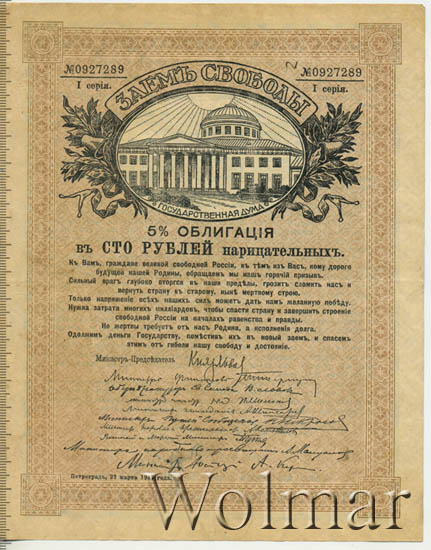 №0927289 2 №0927289
I серія. I серія.
ЗАЕМЪ СВОБОДЫ
ГОСУДАРСТВЕННАЯ ДУМА
5% ОБЛИГАЦІЯ
въ СТО РУБЛЕЙ нарицательныхъ.
Къ Вамъ, граждане великой свободной Россіи, къ тѣмъ изъ Васъ, кому дорого
будущее нашей Родины, обращаемъ мы нашъ горячій призывъ.
Сильный врагъ глубоко вторгся въ наши предѣлы, грозитъ сломить насъ и
вернуть страну къ старому, нынѣ мертвому строю.
Только напряженіе всѣхъ нашихъ силъ можетъ дать намъ желанную побѣду.
Нужна затрата многихъ милліардовъ, чтобы спасти страну и завершить строеніе
свободной Россіи на началахъ равенства и правды.
Не жертвы требуетъ отъ насъ Родина, а исполненія долга.
Одолжимъ деньги Государству, помѣстивъ ихъ въ новый заемъ, и спасемъ
этимъ отъ гибели нашу свободу и достояніе.
Министръ-Предсѣдатель Князь Львовъ
Министръ финансовъ
Министръ
Министръ земледѣлія
Министръ
Министръ
Военный и Морской Министръ
Министръ народнаго просвѣщенія
Министръ юстиціи А.
Петроградъ, 27 марта
Wolmar